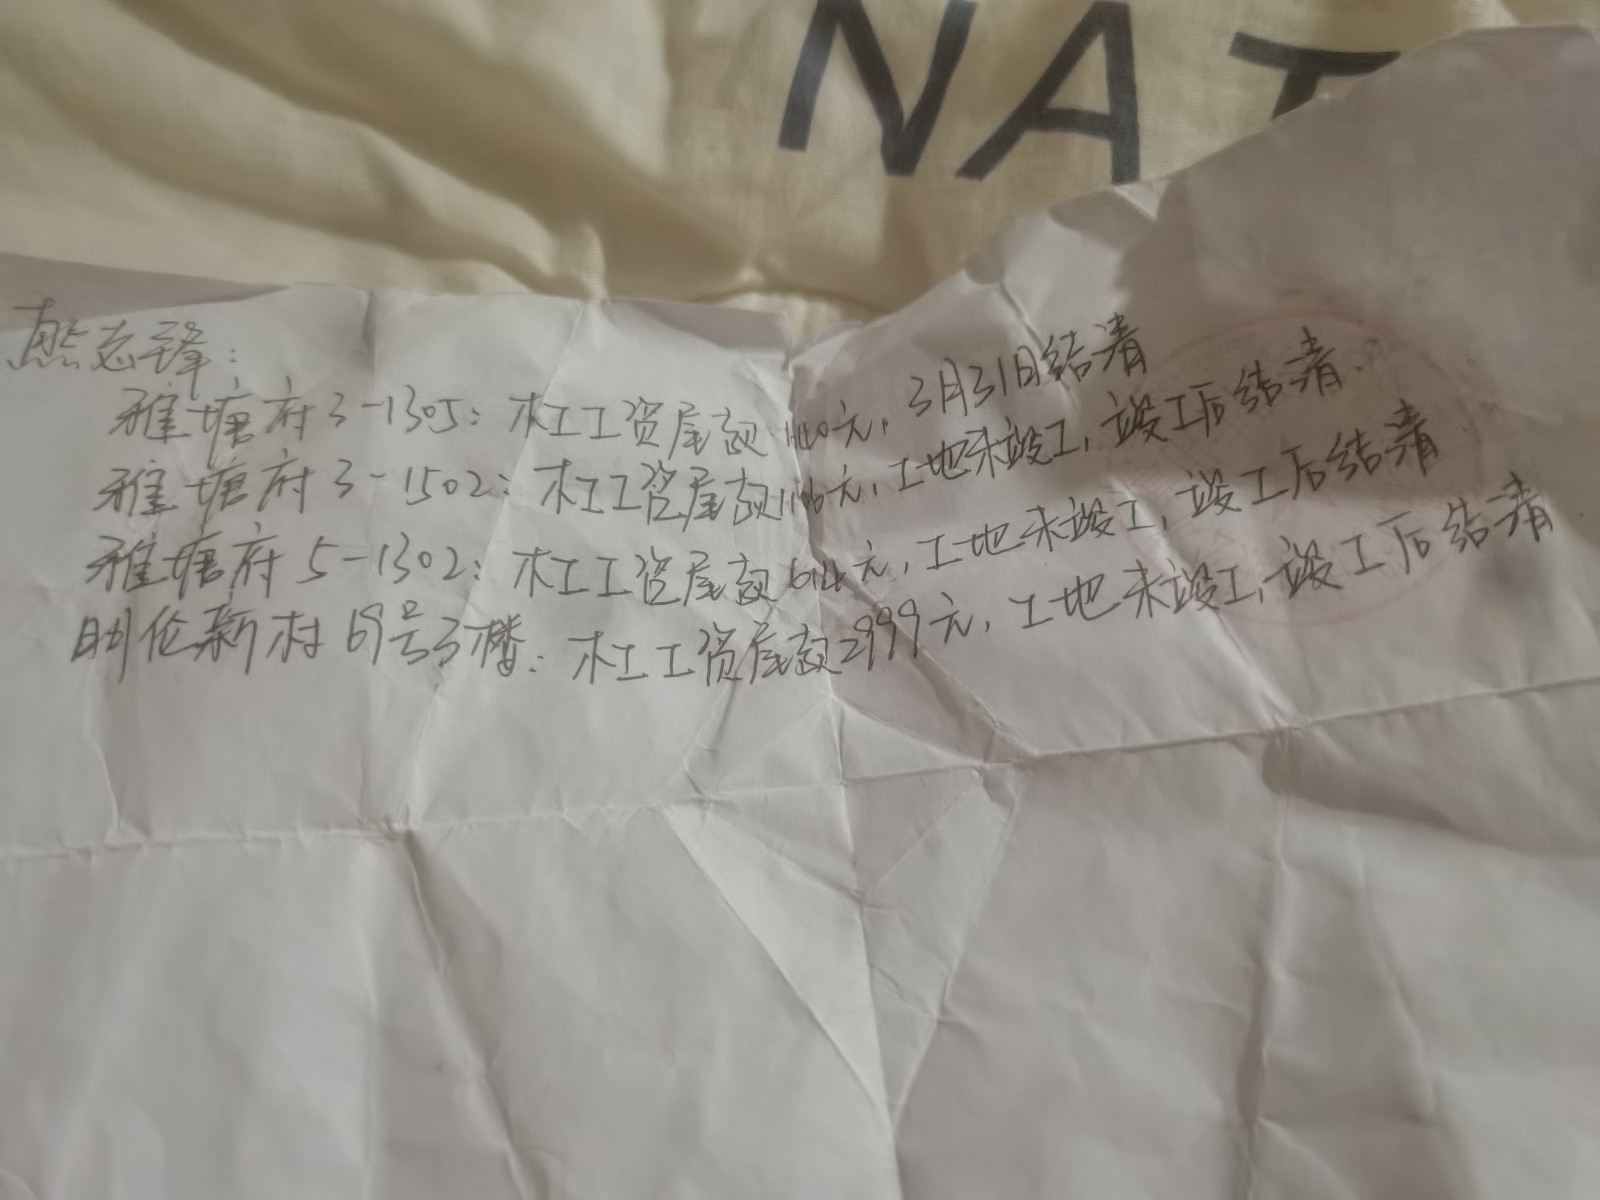 NAT
熊志锋：
雅塘府3-1305：木工工资尾款1440元，3月31日结清
雅塘府3-1502：木工工资尾款1186元，工地未竣工，竣工后结清.
雅塘府5-1302：木工工资尾款 元，工地未竣工，竣工后结清
明伦新村69号3楼：木工工资尾款2999元，工地未竣工，竣工后结清